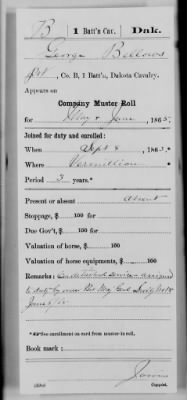 B 1 Batt's Cav. Dak.
George Bellows
Pvt, Co. B, 1 Batt'n, Dakota Cavalry.
Appears on
Company Muster Roll
for May & June, 1865.
Joined for duty and enrolled:
When Sept 8, 186
Where Vermillion
Period 3 years.*
Present or absent absent
Stoppage, $ 100 for
Due Gov't, $ 100 for
Valuation of horse, $ 100
Valuation of horse equipments, $ 100
Remarks: On detached service assigned
to duty by order
June
*See enrollment on card from muster-in roll.
Book mark:
Copyist.